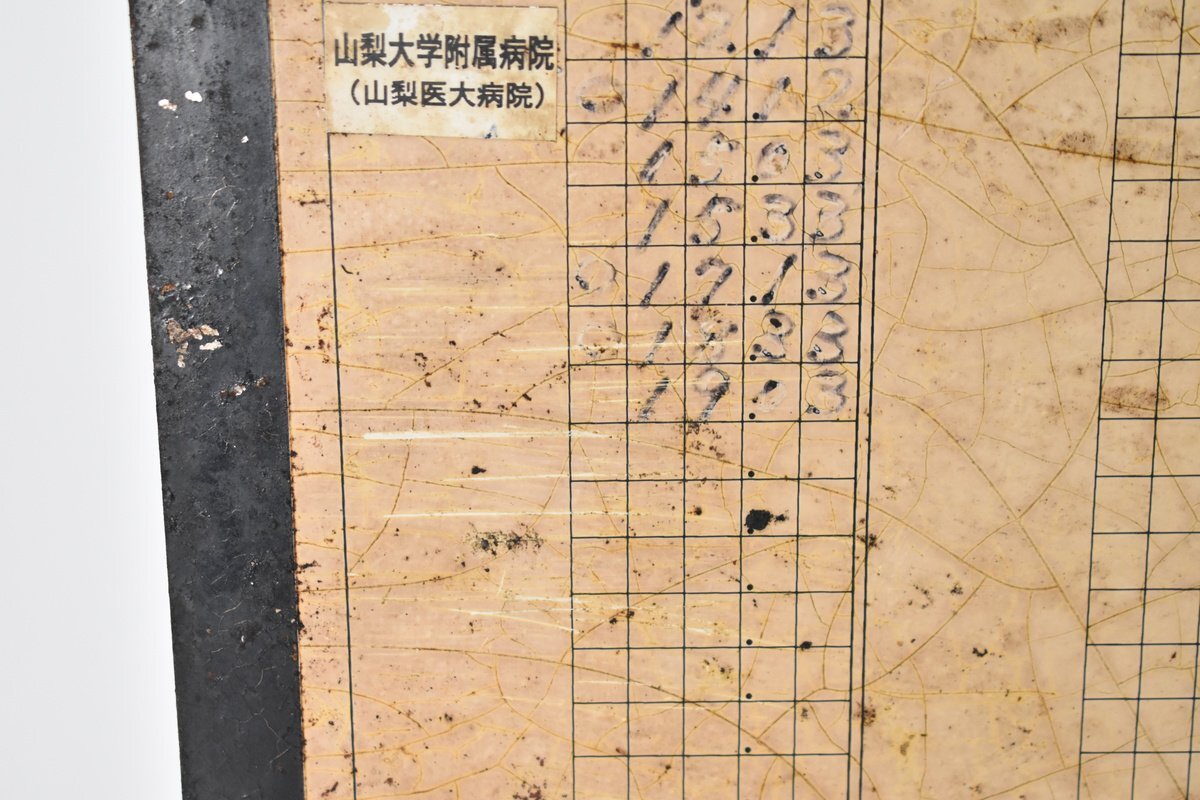 山梨大学附属病院
(山梨医大病院)
12.13
14.12
15.03
15.33
17.13
18.33
19.03